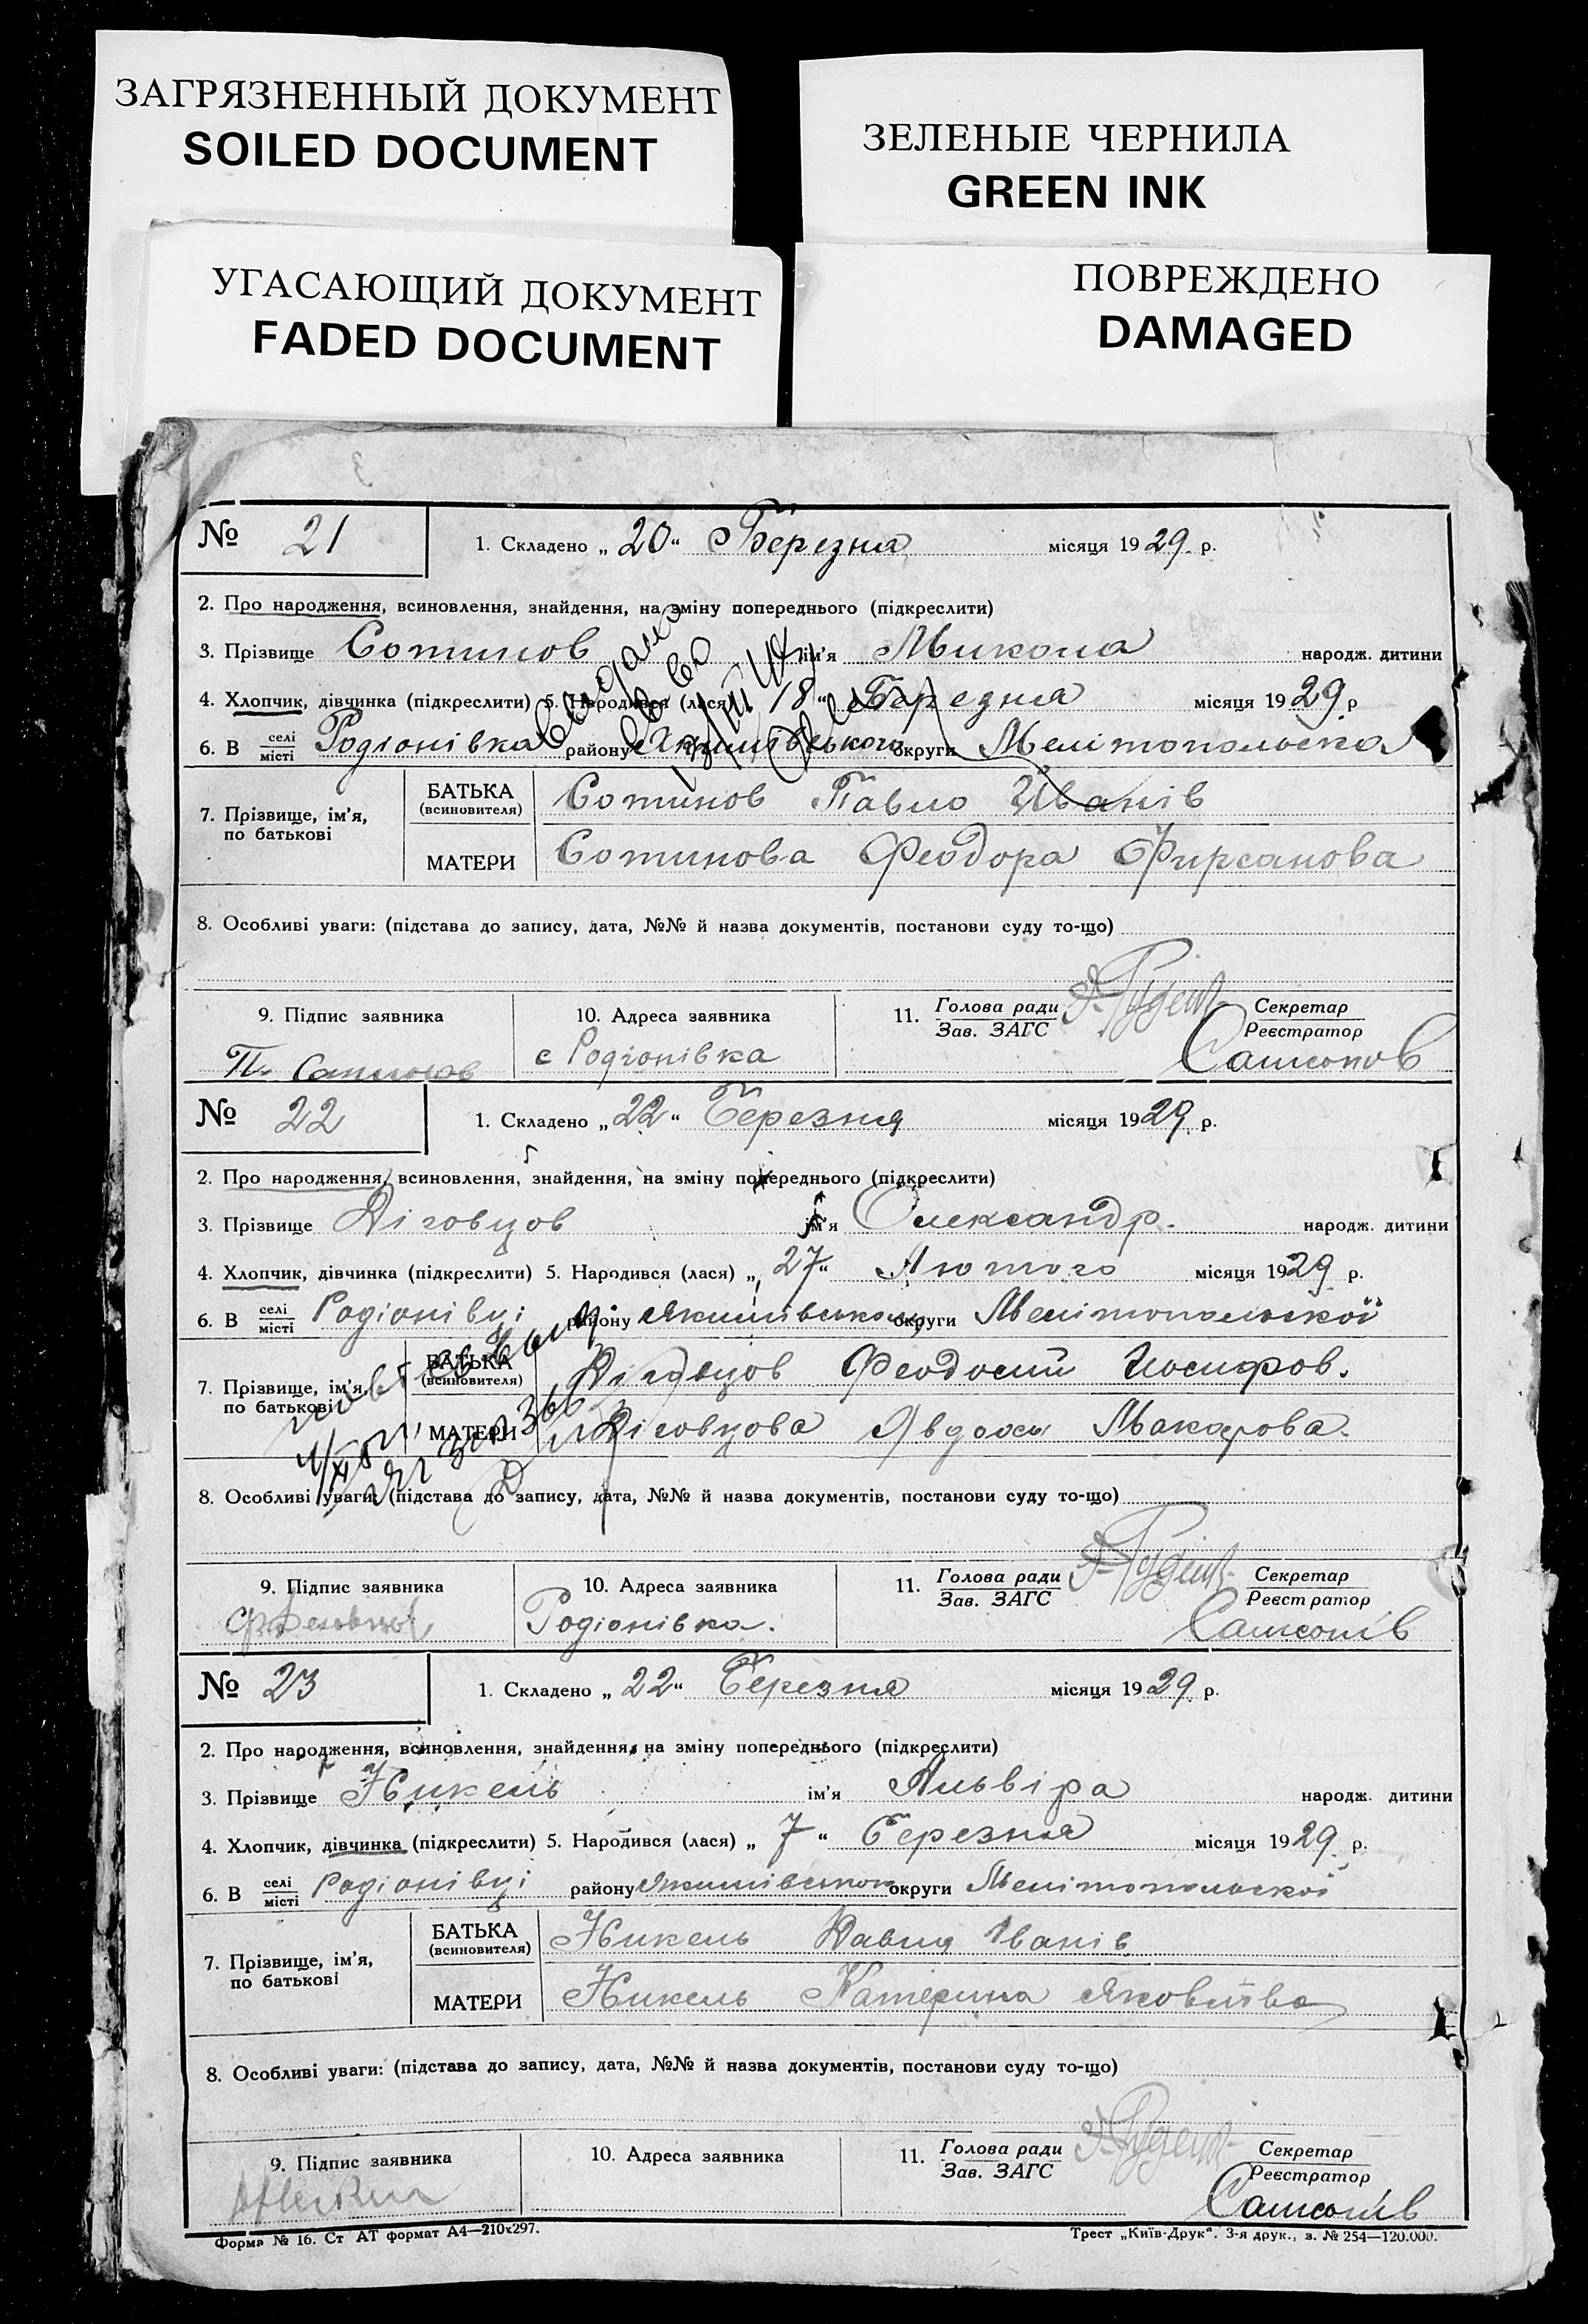 ЗАГРЯЗНЕННЫЙ ДОКУМЕНТ
SOILED DOCUMENT
ЗЕЛЕНЫЕ ЧЕРНИЛА
GREEN INK
УГАСАЮЩИЙ ДОКУМЕНТ
FADED DOCUMENT
ПОВРЕЖДЕНО
DAMAGED
№ 21
1. Складено „20“ Березня місяця 1929 р.
2. Про народження, всиновлення, знайдення, на зміну попереднього (підкреслити)
3. Прізвище Сотинов ім'я Микола народж. дитини
4. Хлопчик, дівчинка (підкреслити) 5. Народився (лася) „18“ Березня місяця 1929 р
6. В селі/місті Родіонівка району Якимівського округи Мелітопольска
7. Прізвище, ім'я, по батькові
БАТЬКА (всиновителя) Сотинов Павло Иванів
МАТЕРИ Сотинова Феодора Фирсанова
8. Особливі уваги: (підстава до запису, дата, №№ й назва документів, постанови суду то-що)
9. Підпис заявника
10. Адреса заявника
11. Голова ради/Зав. ЗАГС Секретар/Реєстратор
П.
с Родіонівка
Самсонов
№ 22
1. Складено „22“ Березня місяця 1929 р.
2. Про народження, всиновлення, знайдення, на зміну попереднього (підкреслити)
3. Прізвище Діговцов ім'я Олександр. народж. дитини
4. Хлопчик, дівчинка (підкреслити) 5. Народився (лася) „27“ Лютого місяця 1929 р.
6. В селі/місті Родіонівці району округи Мелітопольскої
7. Прізвище, ім'я, по батькові
БАТЬКА (всиновителя) Діговцов Феодосий Иосифов.
МАТЕРИ Діговцова Явдоха Макарова.
8. Особливі уваги: (підстава до запису, дата, №№ й назва документів, постанови суду то-що)
9. Підпис заявника
10. Адреса заявника
11. Голова ради/Зав. ЗАГС Секретар/Реєстратор
Родіонівка.
Самсонів
№ 23
1. Складено „22“ Березня місяця 1929 р.
2. Про народження, всиновлення, знайдення, на зміну попереднього (підкреслити)
3. Прізвище Никель ім'я Альвіра народж. дитини
4. Хлопчик, дівчинка (підкреслити) 5. Народився (лася) „7“ Березня місяця 1929 р.
6. В селі/місті Родіонівці району округи Мелітопольскої
7. Прізвище, ім'я, по батькові
БАТЬКА (всиновителя) Никель Давид Іванів
МАТЕРИ Никель Катерина
8. Особливі уваги: (підстава до запису, дата, №№ й назва документів, постанови суду то-що)
9. Підпис заявника
10. Адреса заявника
11. Голова ради/Зав. ЗАГС Секретар/Реєстратор
Самсонів
Форма № 16. Ст АТ формат А4—210х297.
Трест „Київ-Друк“. 3-я друк., з. № 254—120.000.